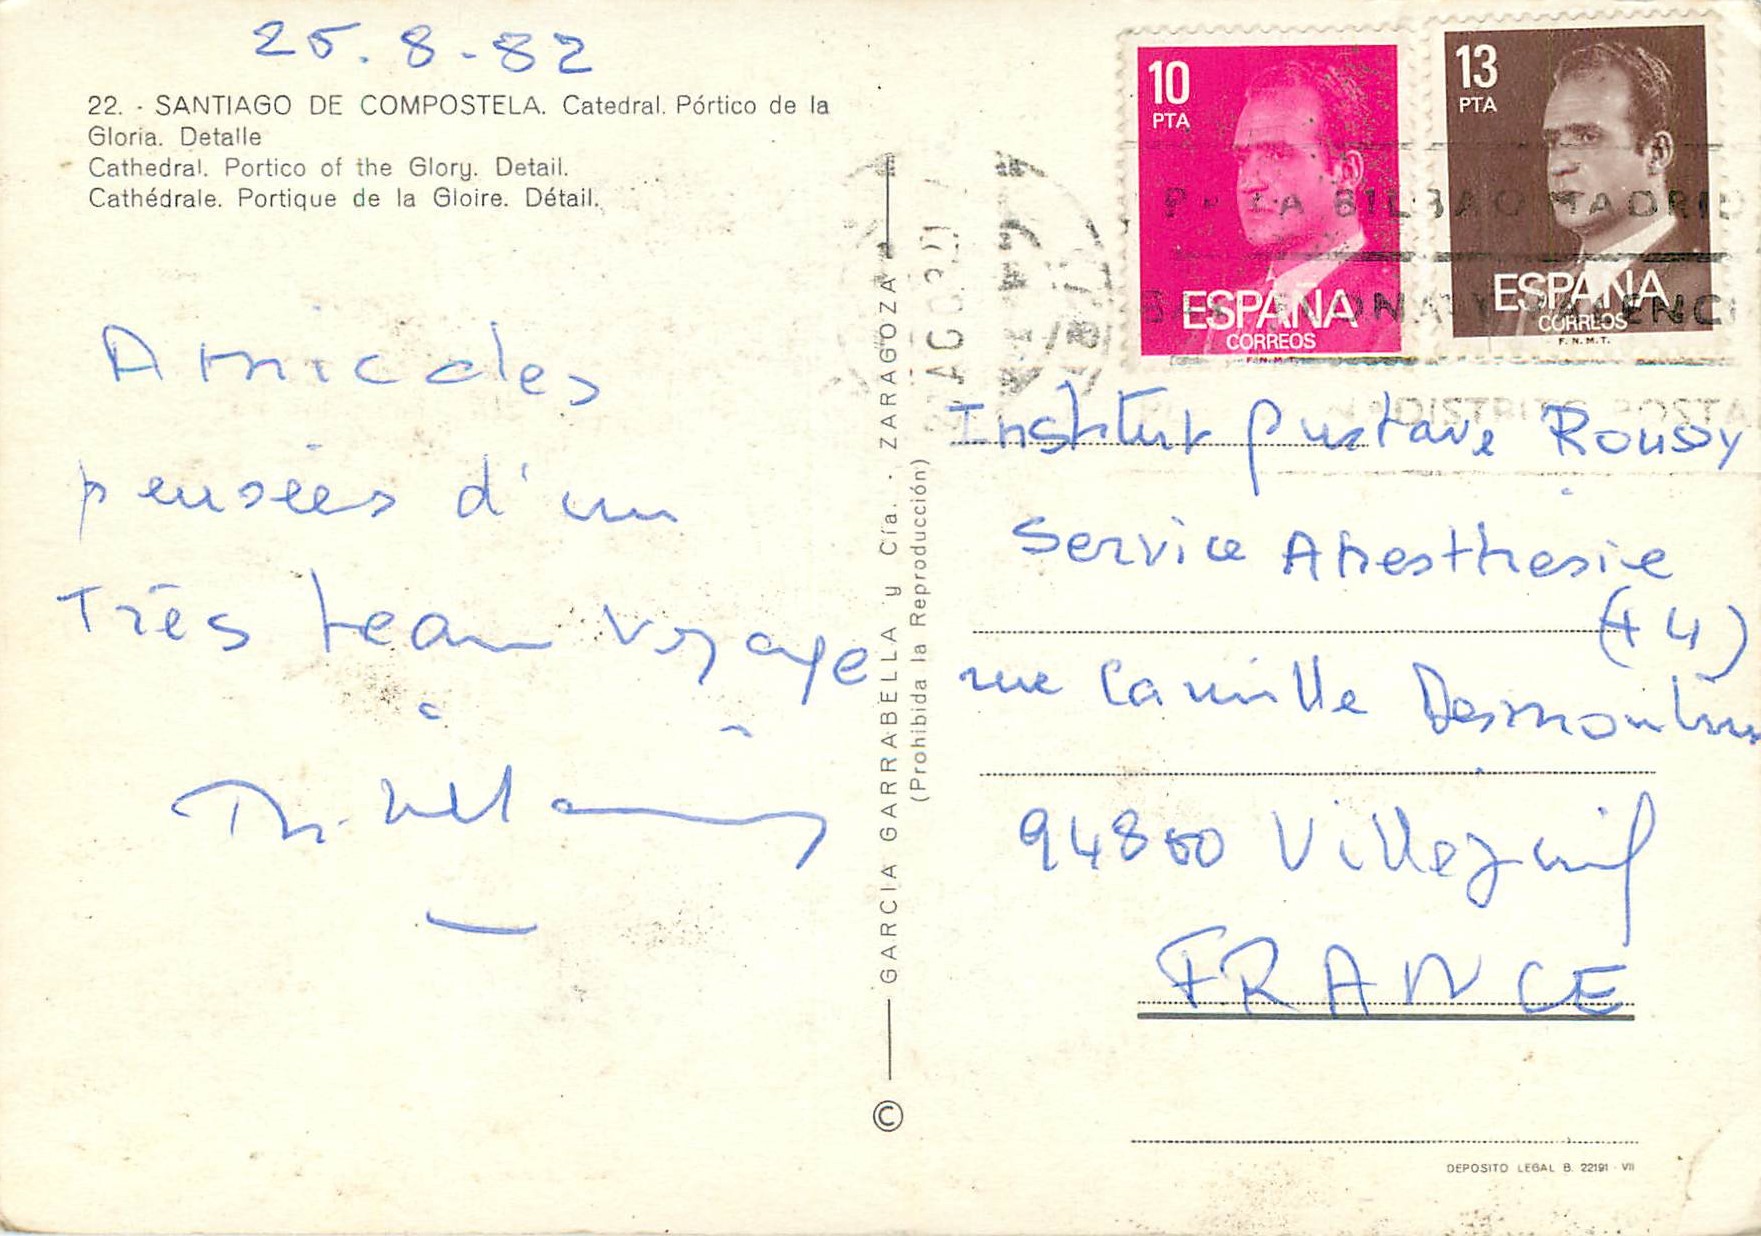 25.8-82
22. - SANTIAGO DE COMPOSTELA. Catedral. Pórtico de la
Gloria. Detalle
Cathedral. Portico of the Glory. Detail.
Cathédrale. Portique de la Gloire. Détail.
Amicales
pensées d'un
Très beau voyage
GARCIA GARRABELLA y Cía. - ZARAGOZA
(Prohibida la Reproducción)
©
10
PTA
ESPAÑA
CORREOS
F.N.M.T.
13
PTA
ESPAÑA
CORREOS
F.N.M.T.
LA BILBAO MADRID
DISTRITO POSTA
Institut Gustave Roussy
Service Anesthesie
(44)
rue Camille Desmoulins
94800 Villejuif
FRANCE
DEPOSITO LEGAL B. 22191 - VII